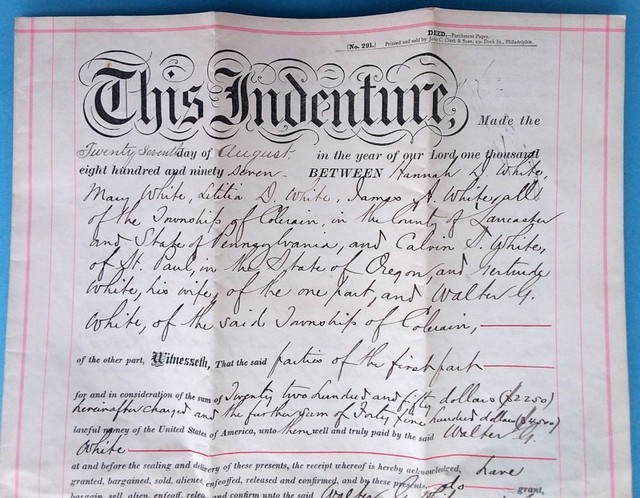 (No. 291.)
DEED.—Parchment Paper.
Printed and sold by John C. Clark & Sons, 230 Dock St., Philadelphia.
This Indenture, Made the
Twenty Seventh day of August in the year of our Lord one thousand
eight hundred and ninety seven BETWEEN Hannah D. White,
Mary White, Letitia D. White, James A. White, all
of the Township of Colerain, in the County of Lancaster
and State of Pennsylvania, and Calvin S. White,
of St. Paul, in the State of Oregon, and Gertrude
White, his wife, of the one part, and Walter G.
White, of the said Township of Colerain,
of the other part, Witnesseth, That the said parties of the first part
for and in consideration of the sum of Twenty two hundred and fifty dollars ($2250)
hereinafter charged and the further sum of Forty nine hundred dollars
lawful money of the United States of America, unto them well and truly paid by the said Walter G.
White
at and before the sealing and delivery of these presents, the receipt whereof is hereby acknowledged, have
granted, bargained, sold, aliened, enfeoffed, released and confirmed, and by these presents, do grant,
bargain, sell, alien, enfeoff, release and confirm unto the said Walter G.